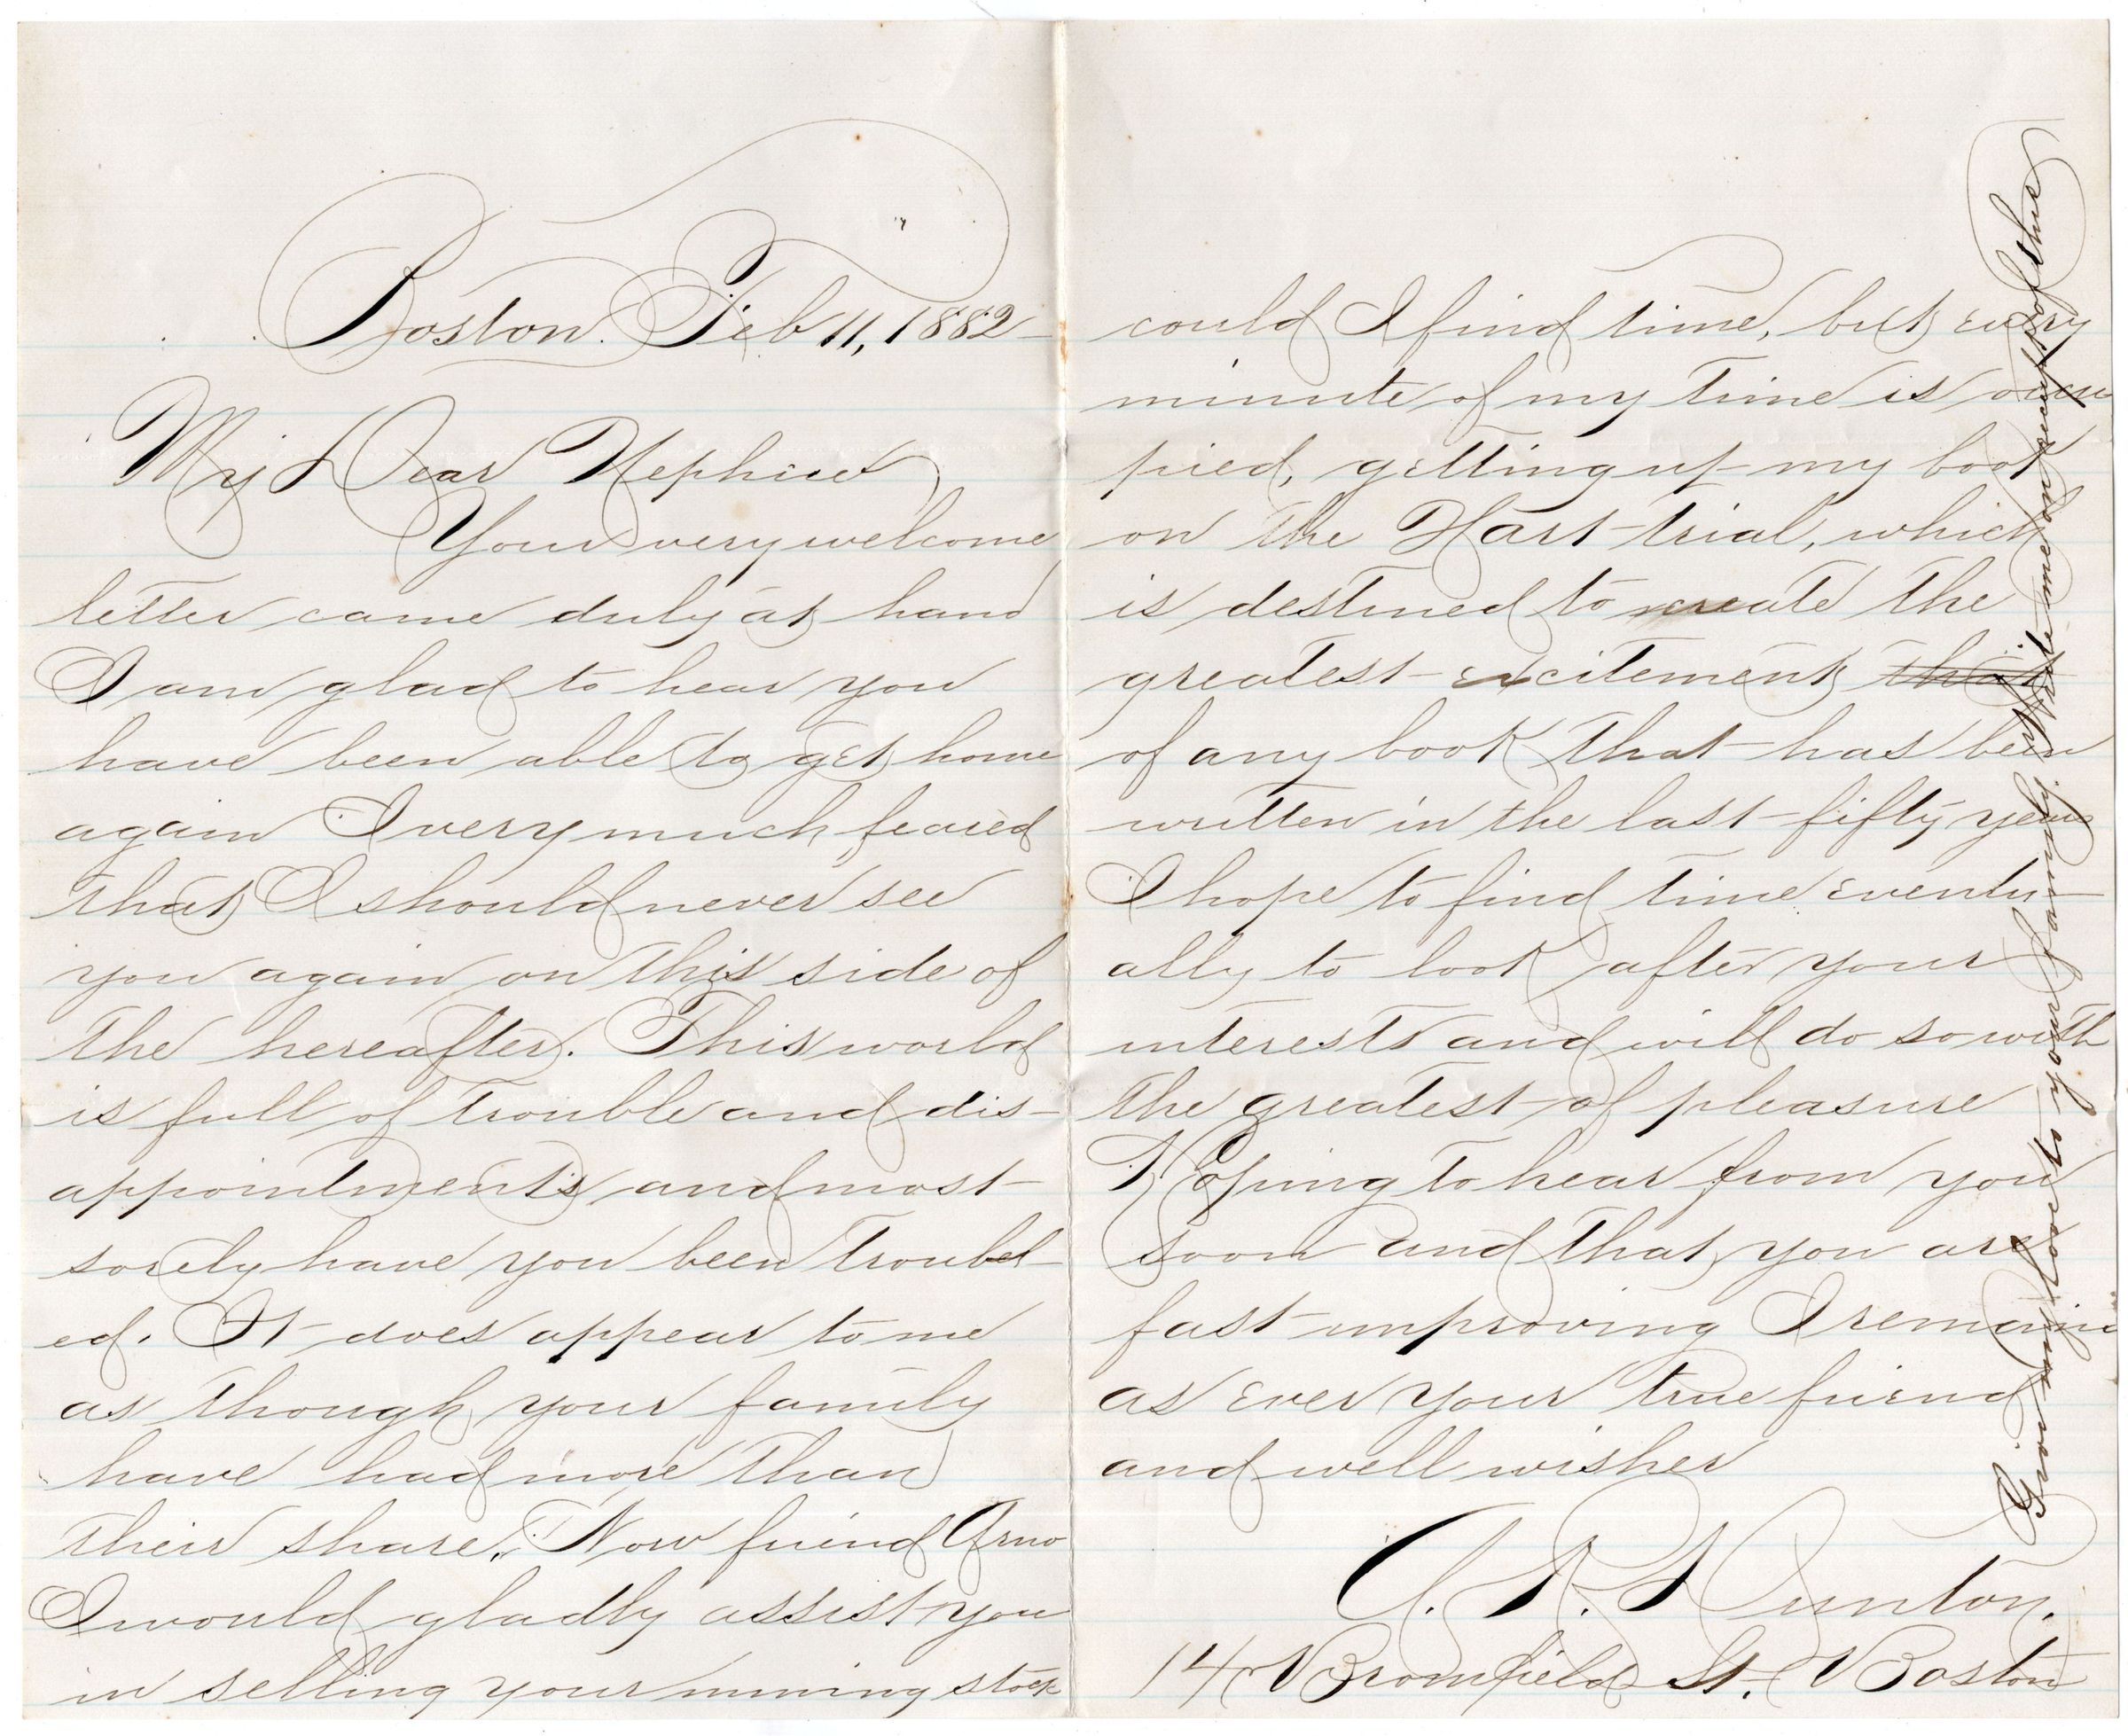 Boston. Feb 11, 1882
My Dear Nephew
Your very welcome
letter came duly at hand
I am glad to hear you
have been able to get home
again I very much feared
that I should never see
you again on this side of
the hereafter. This world
is full of trouble and dis-
appointments and most
sorely have you been troubl-
ed. It does appear to me
as though your family
have had more than
their share. Now friend Arno
I would gladly assist you
in selling your mining stock
could I find time, but every
minute of my time is occu
pied, getting up my book
on the Hart trial, which
is destined to create the
greatest excitement that
of any book that has been
written in the last fifty years
I hope to find time eventu-
ally to look after your
interests and will do so with
the greatest of pleasure
Hoping to hear from you
soon and that you are
fast improving I remain
as ever your true friend
and well wisher
Dunton.
14 Bromfield St. Boston
Give my love to your family. Write me on receipt of this